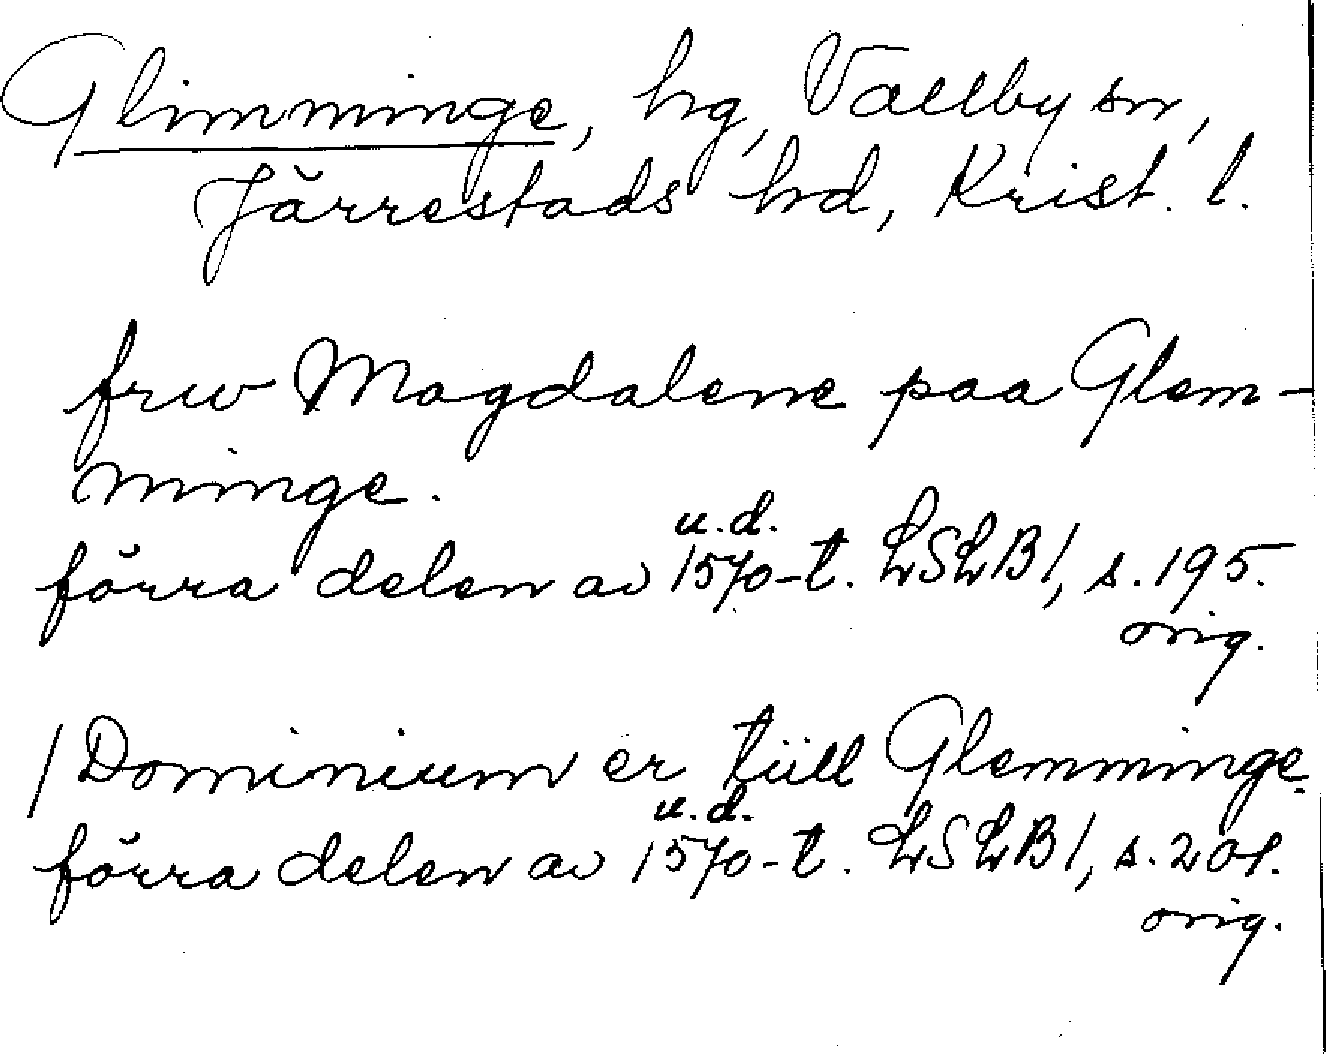 Glimminge, hg, Vallby sn,
Järrestads hd, Krist. l.
frw Magdalene paa Glem-
minge.
u.d.
förra delen av 1570-t. LSLB1, s. 195.
orig.
/Dominium er tüll Glemminge.
u.d.
förra delen av 1570-t. LSLB1, s. 201.
orig.